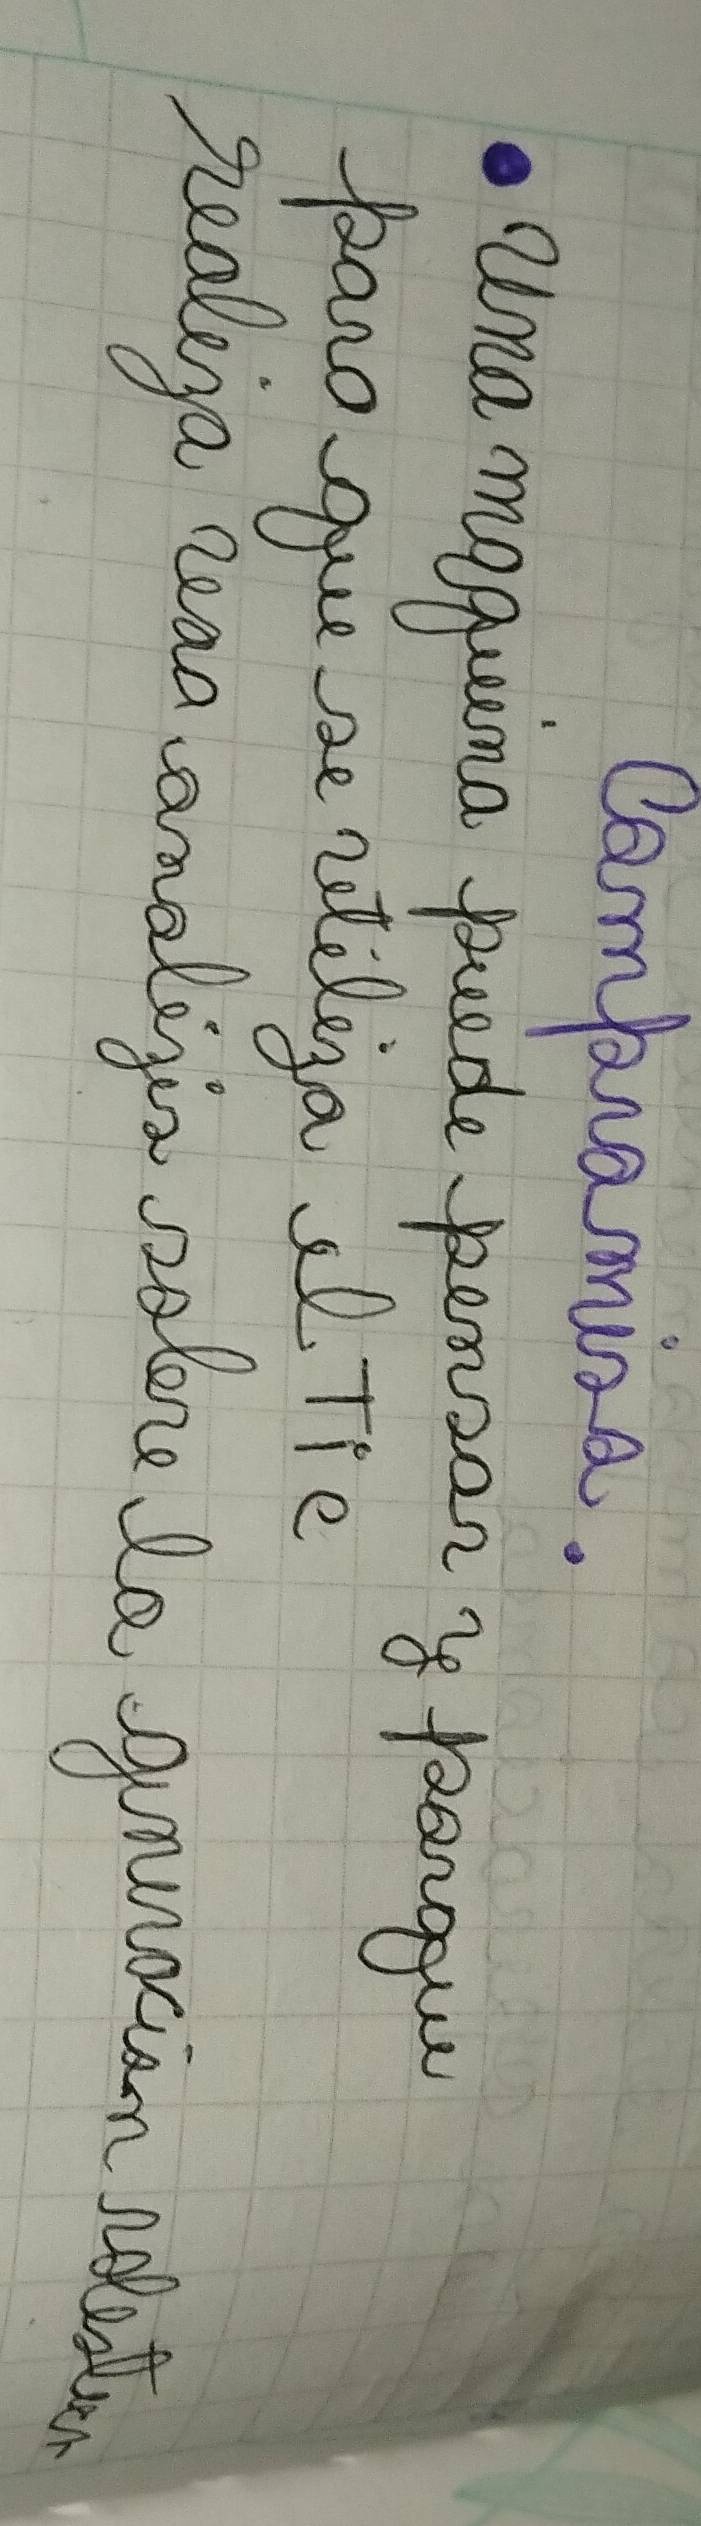 Compramiso.
• Una maquina puede pensar y porque
para que se utiliza el Tic
Realiza una analizis sobre la generación